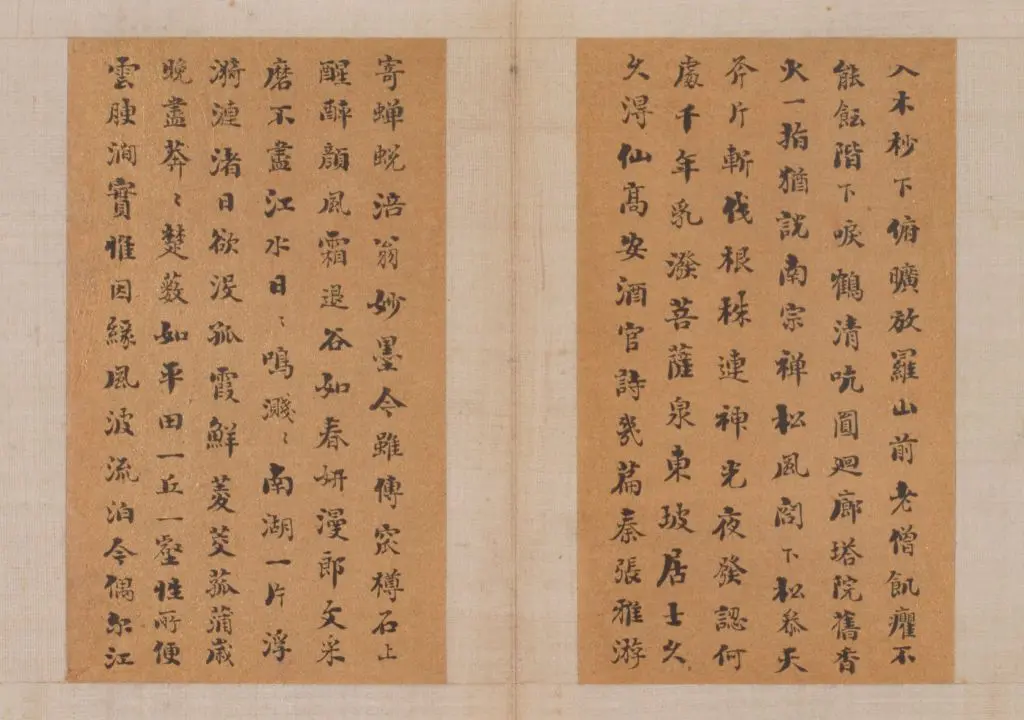 入木杪下俯曠放羅山前老僧飢癯不
能階下唳鶴清吭圓迴廊塔院舊香
火一指猶説南宗禅松風閣下松參天
斧斤斬伐根株連神光夜發認何
處千年乳潑菩薩泉東坡居士久
久得仙高安酒官詩幾篇秦張雅游
寄蟬蜕涪翁妙墨今雖傳窊樽石上
醒醉顏風霜退谷如春妍漫郎文采
磨不盡江水日〻鳴濺〻南湖一片浮
漪漣渚日欲没孤霞鮮菱芡菰蒲歲
晚盡莽〻楚藪如平田一丘一壑性所便
雲腴澗實惟因緣風波流泊今偶尔江